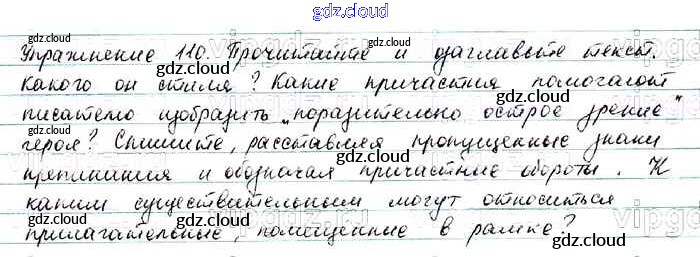 gdz.cloud
Упражнение 110. Прочитайте и озаглавьте текст.
Какого он стиля? Какие причастия помогают
писателю изобразить "поразительно острое зрение"
героя? Спишите, расставляя пропущенные знаки
препинания и обозначая причастные обороты. К
каким существительным могут относиться
прилагательные, помещенные в рамке?
gdz.cloud